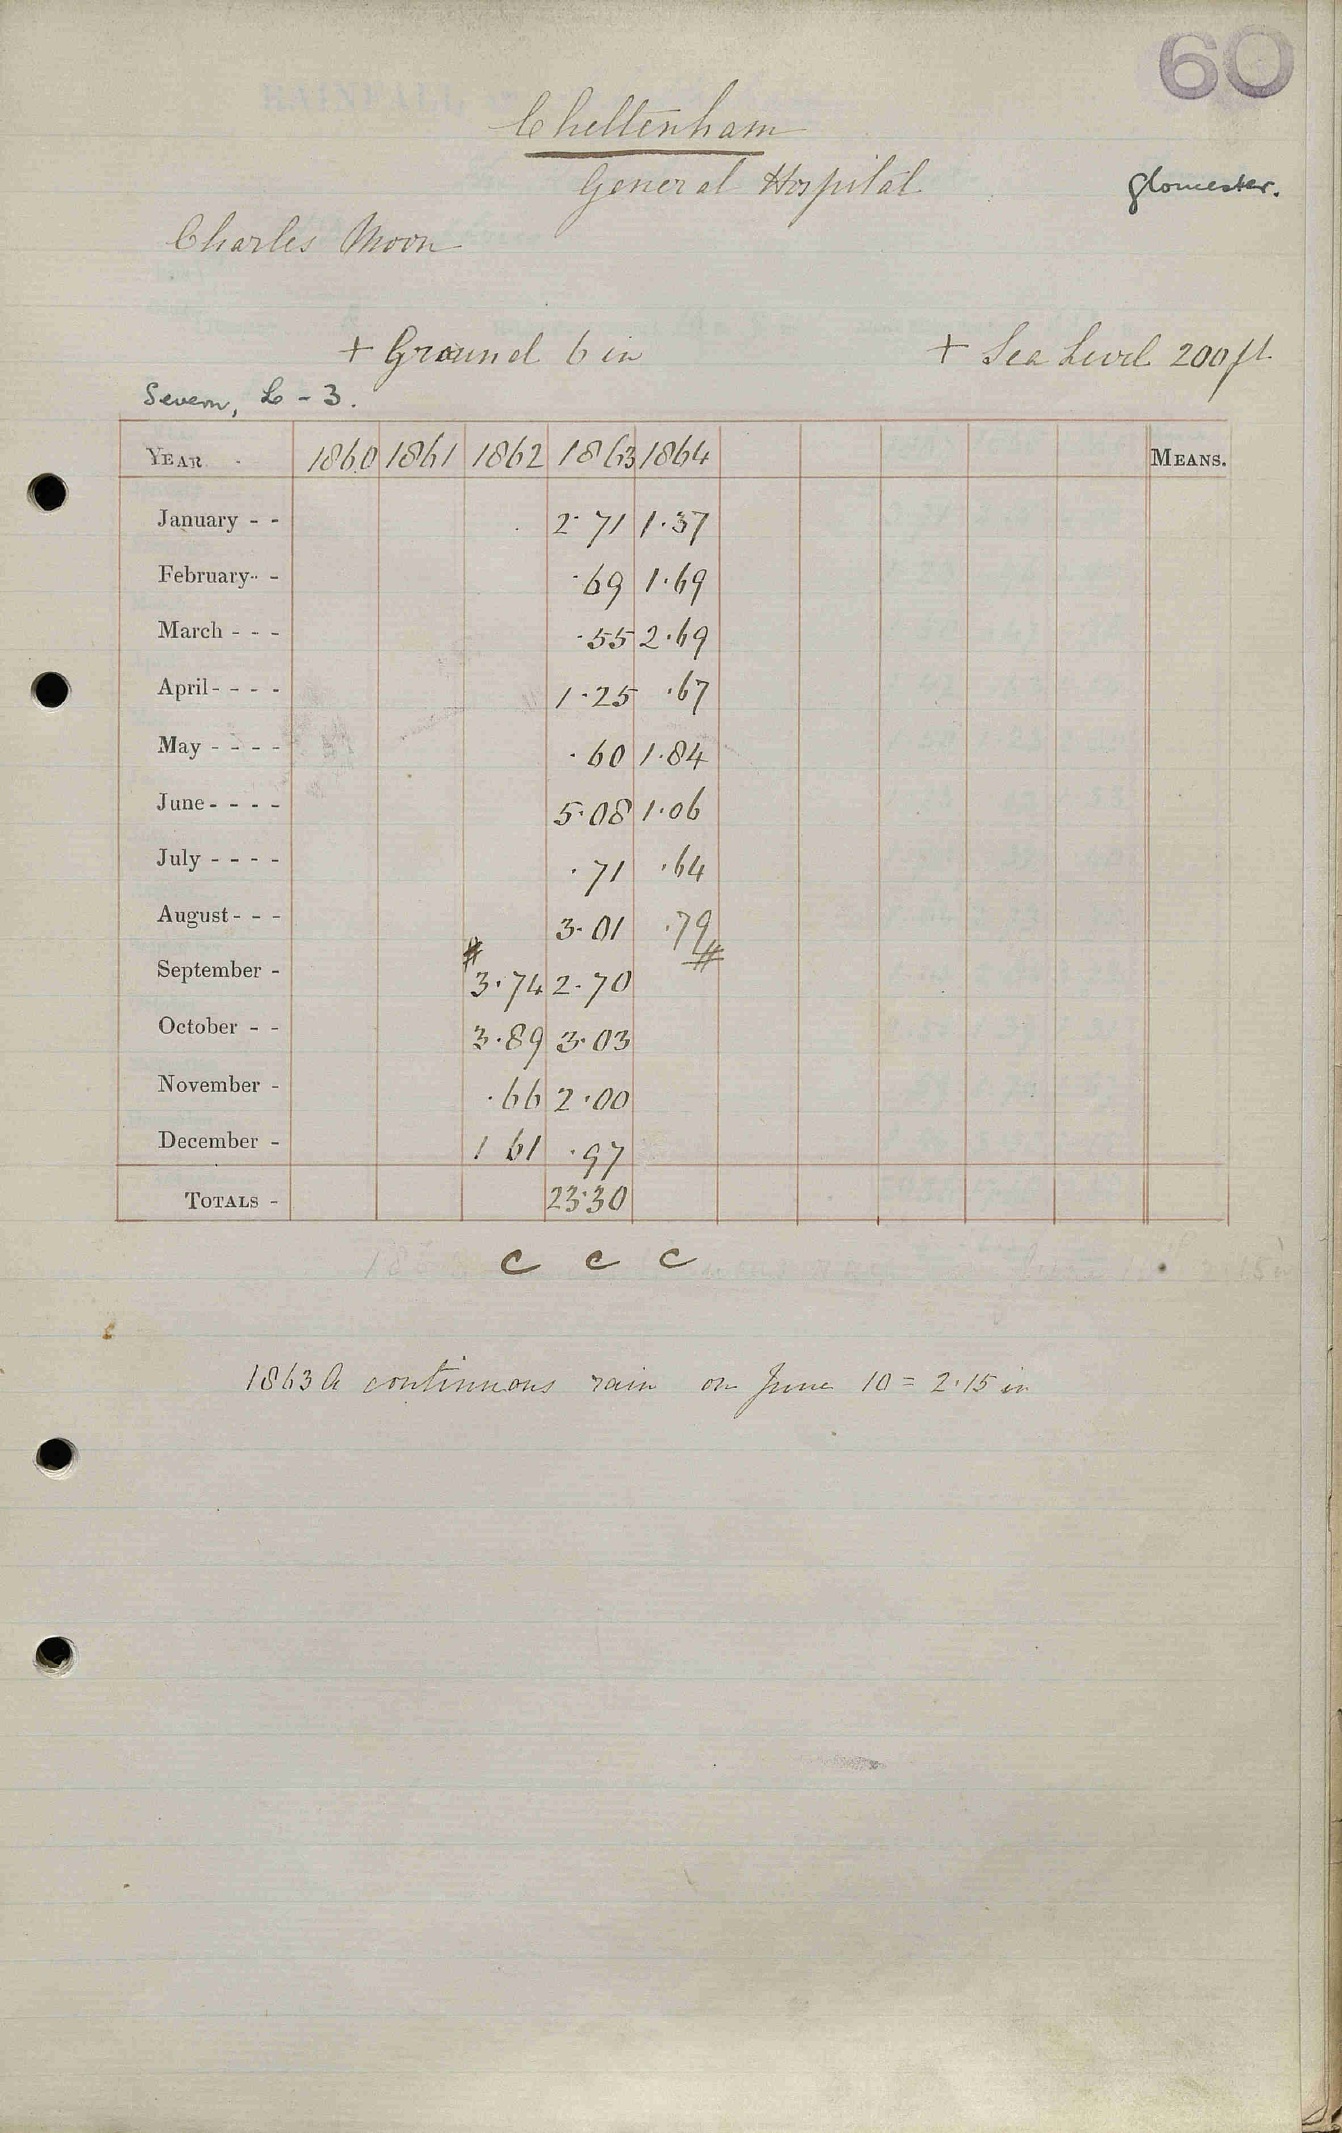 60
Cheltenham
General Hospital
Gloucester.
Charles Moon
+ Ground 6 in + Sea Level 200 ft
Severn, L - 3.
YEAR. - 1860 1861 1862 1863 1864 MEANS.
January - - 2.71 1.37
February - - .69 1.69
March - - - .55 2.69
April - - - - 1.25 .67
May - - - - .60 1.84
June - - - - 5.08 1.06
July - - - - .71 .64
August - - - 3.01 .79
# #
September - 3.74 2.70
October - - 3.89 3.03
November - .66 2.00
December - 1 61 .97
TOTALS - 23.30
C C C
1863 A continuous rain on June 10 = 2.15 in